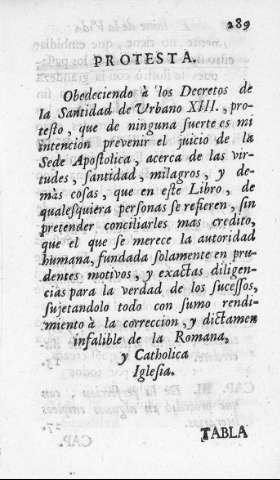 289
PROTESTA.
Obedeciendo à los Decretos de
la Santidad de Urbano XIII., pro-
testo, que de ninguna suerte es mi
intencion prevenir el juicio de la
Sede Apostolica, acerca de las vir-
tudes, santidad, milagros, y de-
màs cosas, que en este Libro, de
qualesquiera personas se refieren, sin
pretender conciliarles mas credito,
que el que se merece la autoridad
humana, fundada solamente en pru-
dentes motivos, y exactas diligen-
cias para la verdad de los sucessos,
sujetandolo todo con sumo rendi-
miento à la correccion, y dictamen
infalible de la Romana,
y Catholica
Iglesia.
TABLA